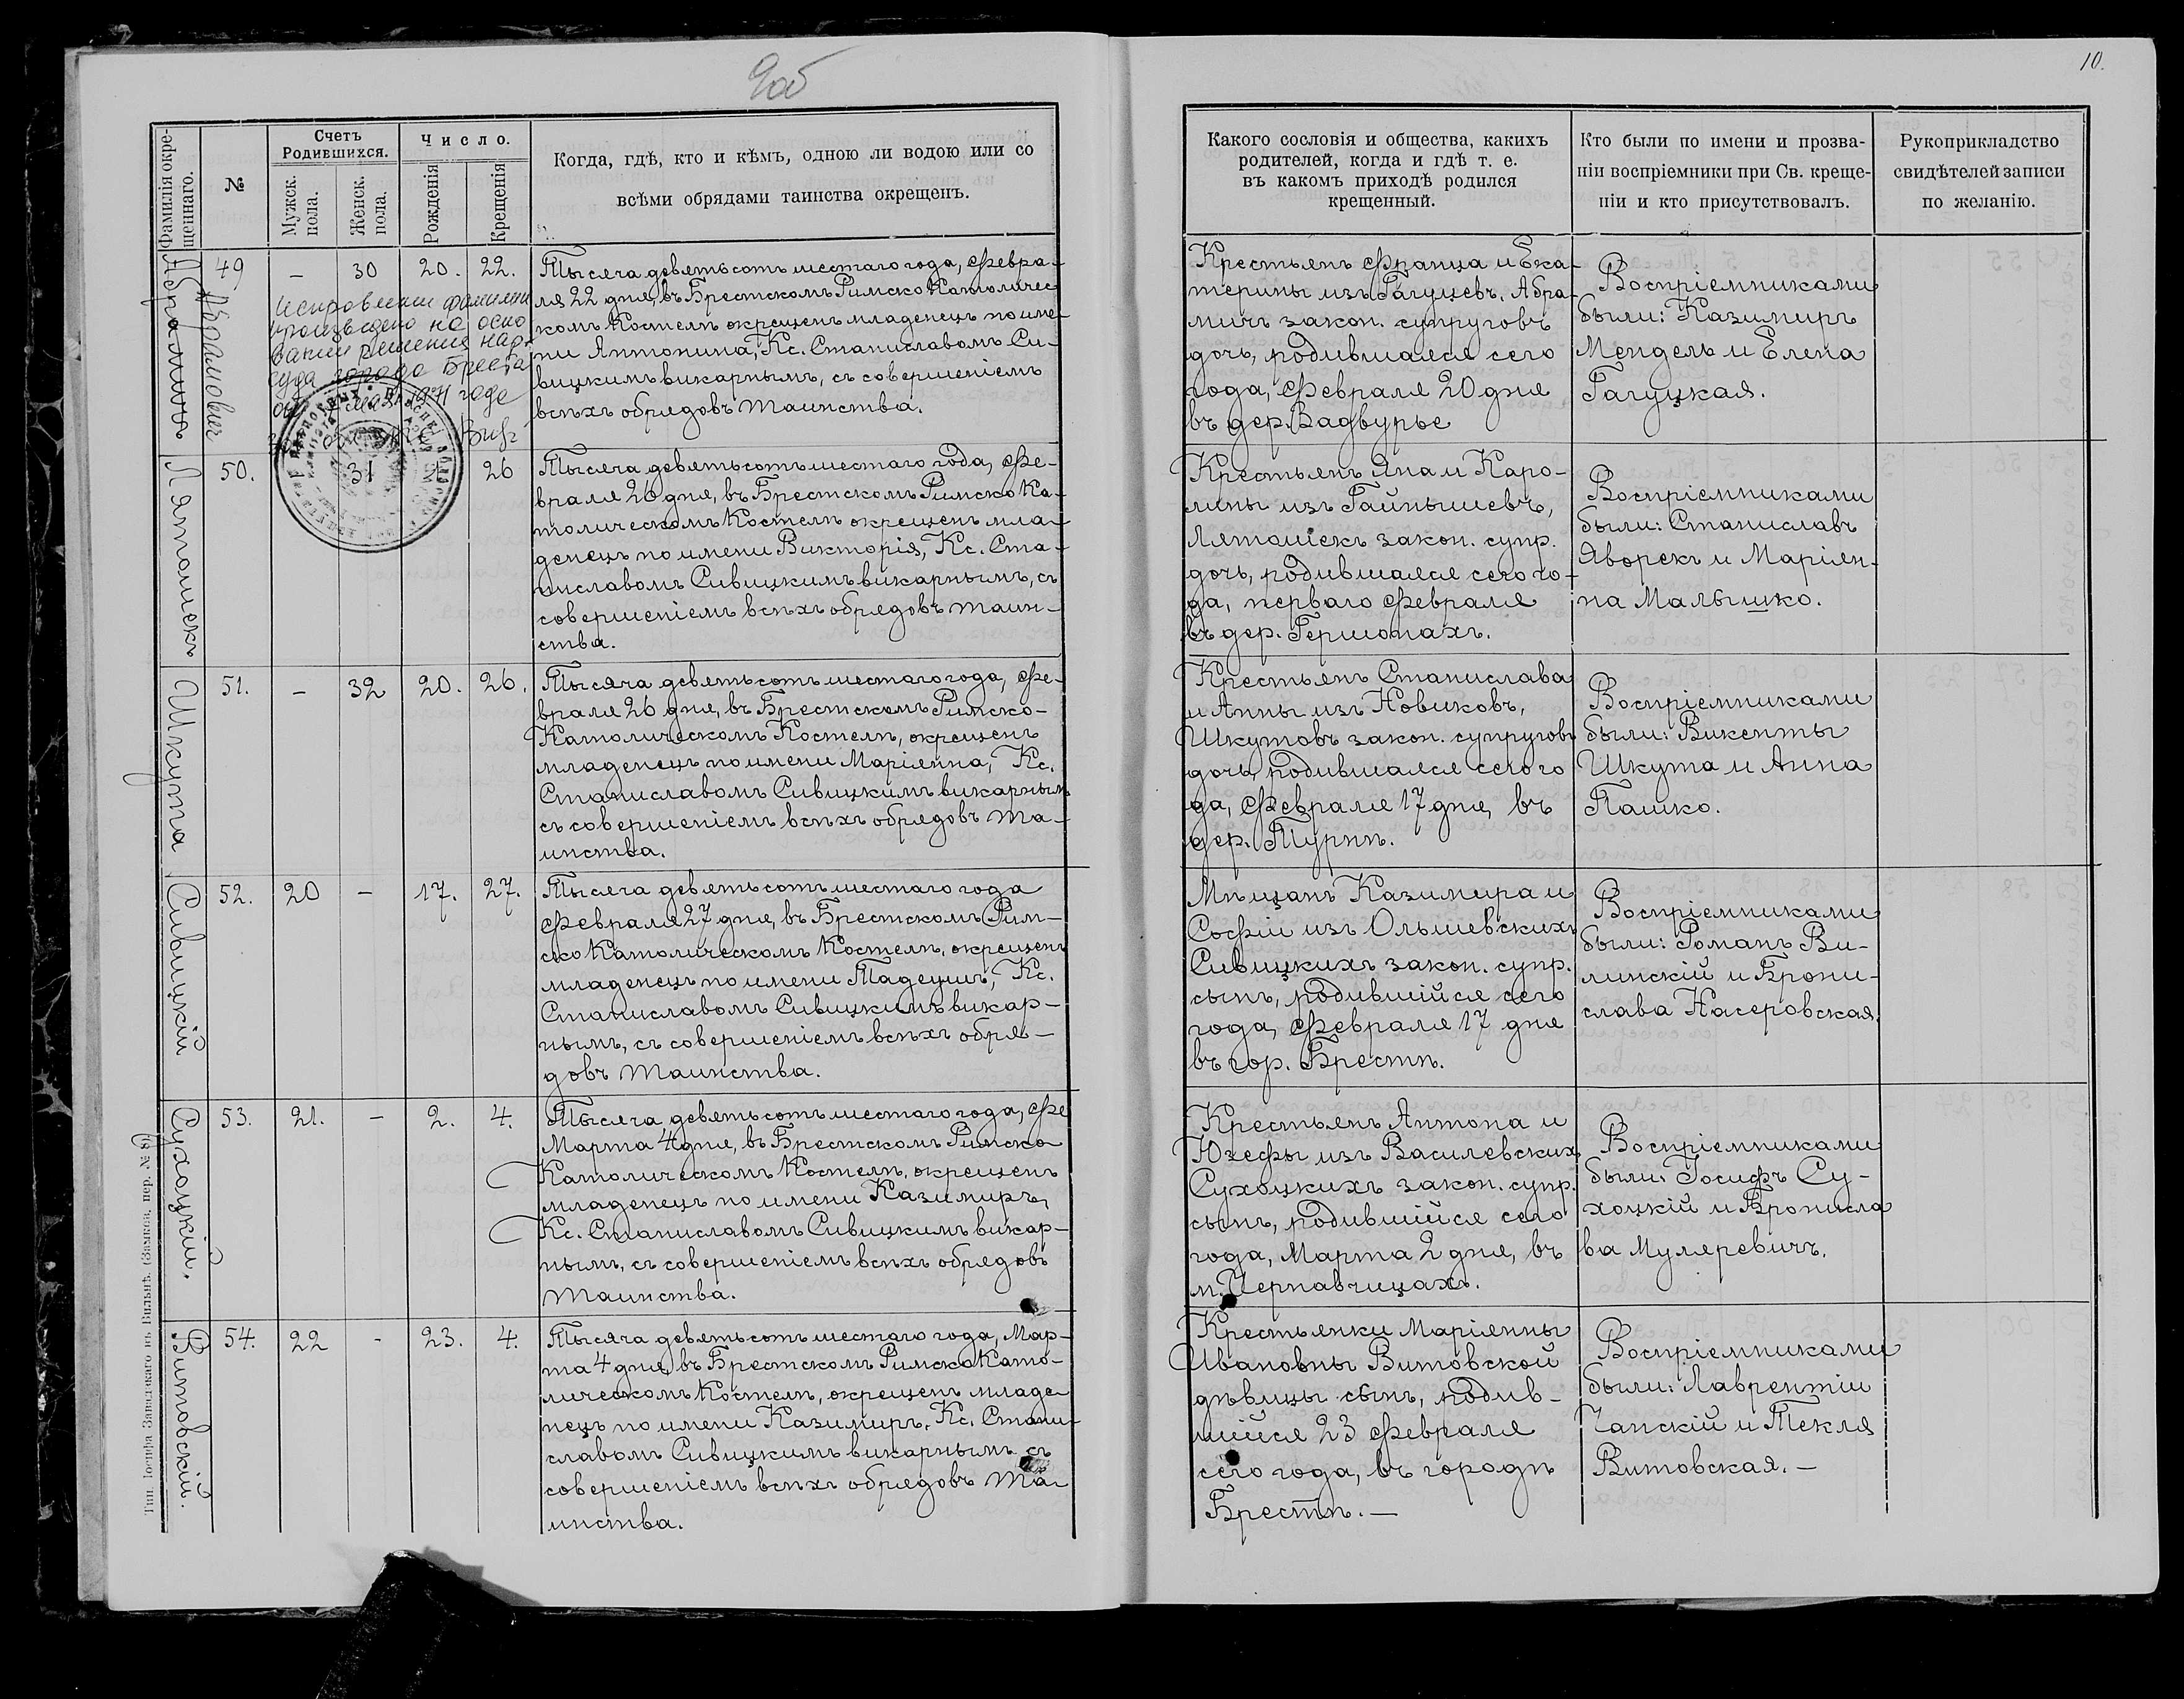 9об
10.
Фамилія окре-
щеннаго.
№
Счетъ
Родившихся.
Мужск.
пола.
Женск.
пола.
Число.
Рожденія
Крещенія
Когда, гдѣ, кто и кѣмъ, одною ли водою или со
всѣми обрядами таинства окрещенъ.
Какого сословія и общества, какихъ
родителей, когда и гдѣ т. е.
въ какомъ приходѣ родился
крещенный.
Кто были по имени и прозва-
ніи воспріемники при Св. креще-
ніи и кто присутствовалъ.
Рукоприкладство
свидѣтелей записи
по желанію.
49
–
30
20.
22.
Исправление фамилии
произведено на осно
вании решения нар.
суда города Бреста
мая 1971 года
Тысяча девятьсотъ шестаго года, Февра-
ля 22 дня, въ Брестскомъ Римско Католичес
комъ Костелѣ окрещенъ младенецъ по име-
ни Антонина, Кс. Станиславомъ Си-
вицкимъ викарнымъ, съ совершеніемъ
всѣхъ обрядовъ Таинства.
Крестьянъ Франца и Ека-
терины изъ Гагуцевъ, Абра-
мичъ закон. супруговъ
дочь, родившаяся сего
года, Февраля 20 дня
въ дер. Задвурье
Воспріемниками
были: Казимиръ
Мендель и Елена
Гагуцкая.
Лятошекъ
50.
31
1
26
Тысяча девятьсотъ шестаго года, Фе-
враля 26 дня, въ Брестскомъ Римско Ка-
толическомъ Костелѣ окрещенъ мла-
денецъ по имени Викторія, Кс. Ста-
ниславомъ Сивицкимъ викарнымъ, съ
совершеніемъ всѣхъ обрядовъ таин-
ства.
Крестьянъ Яна и Каро-
лины изъ Гайнышевъ,
Лятошекъ закон. супр.
дочь, родившаяся сего го-
да, перваго Февраля
въ дер. Гершонахъ.
Воспріемниками
были: Станиславъ
Яворекъ и Маріян-
на Малышко.
Шкута
51.
–
32
20.
26.
Тысяча девятьсотъ шестаго года, Фе-
враля 26 дня, въ Брестскомъ Римско-
Католическомъ Костелѣ, окрещенъ
младенецъ по имени Маріянна, Кс.
Станиславомъ Сивицкимъ викарнымъ
съ совершеніемъ всѣхъ обрядовъ Та-
инства.
Крестьянъ Станислава
и Анны изъ Новиковъ,
Шкутовъ закон. супруговъ
дочь, родившаяся сего го
да, Февраля 17 дня, въ
дер. Турнѣ.
Воспріемниками
были: Викенты
Шкута и Анна
Пашко.
Сивицкій
52.
20
–
17.
27.
Тысяча девятьсотъ шестаго года
Февраля 27 дня, въ Брестскомъ Рим-
ско Католическомъ Костелѣ, окрещенъ
младенецъ по имени Тадеушъ, Кс.
Станиславомъ Сивицкимъ викар-
нымъ, съ совершеніемъ всѣхъ обря-
довъ Таинства.
Мѣщанъ Казимира и
Софіи изъ Ольшевскихъ
Сивицкихъ закон. супр.
сынъ, родившійся сего
года, Февраля 17 дня
въ гор. Брестѣ.
Воспріемниками
были: Романъ Ви-
линскій и Брони-
слава Насеровская.
Сухоцкій.
53.
21.
–
2.
4.
Тысяча девятьсотъ шестаго года, Фе
Марта 4 дня, въ Брестскомъ Римско
Католическомъ Костелѣ, окрещенъ
младенецъ по имени Казимиръ,
Кс. Станиславомъ Сивицкимъ викар-
нымъ, съ совершеніемъ всѣхъ обрядовъ
Таинства.
Крестьянъ Антона и
Юзефы изъ Василевскихъ
Сухоцкихъ закон. супр.
сынъ, родившійся сего
года, Марта 2 дня, въ
м. Чернавчицахъ.
Воспріемниками
были: Іосифъ Су-
хоцкій и Бронисла
ва Муляревичъ.
Витовскій.
54.
22
-
23.
4.
Тысяча девятьсотъ шестаго года, Мар-
та 4 дня, въ Брестскомъ Римско Като-
лическомъ Костелѣ, окрещенъ младе
нецъ по имени Казимиръ, Кс. Стани-
славомъ Сивицкимъ викарнымъ съ
совершеніемъ всѣхъ обрядовъ Та-
инства.
Крестьянки Маріянны
Ивановны Витовской
дѣвицы сынъ, родив-
шійся 23 Февраля
сего года, въ городѣ
Брестѣ.—
Воспріемниками
были: Лаврентій
Чапскій и Текля
Витовская.—
Тип. Іосифа Завадзкаго въ Вильнѣ.